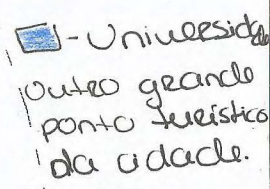 - Universidade
outro grande
ponto turístico
da cidade.